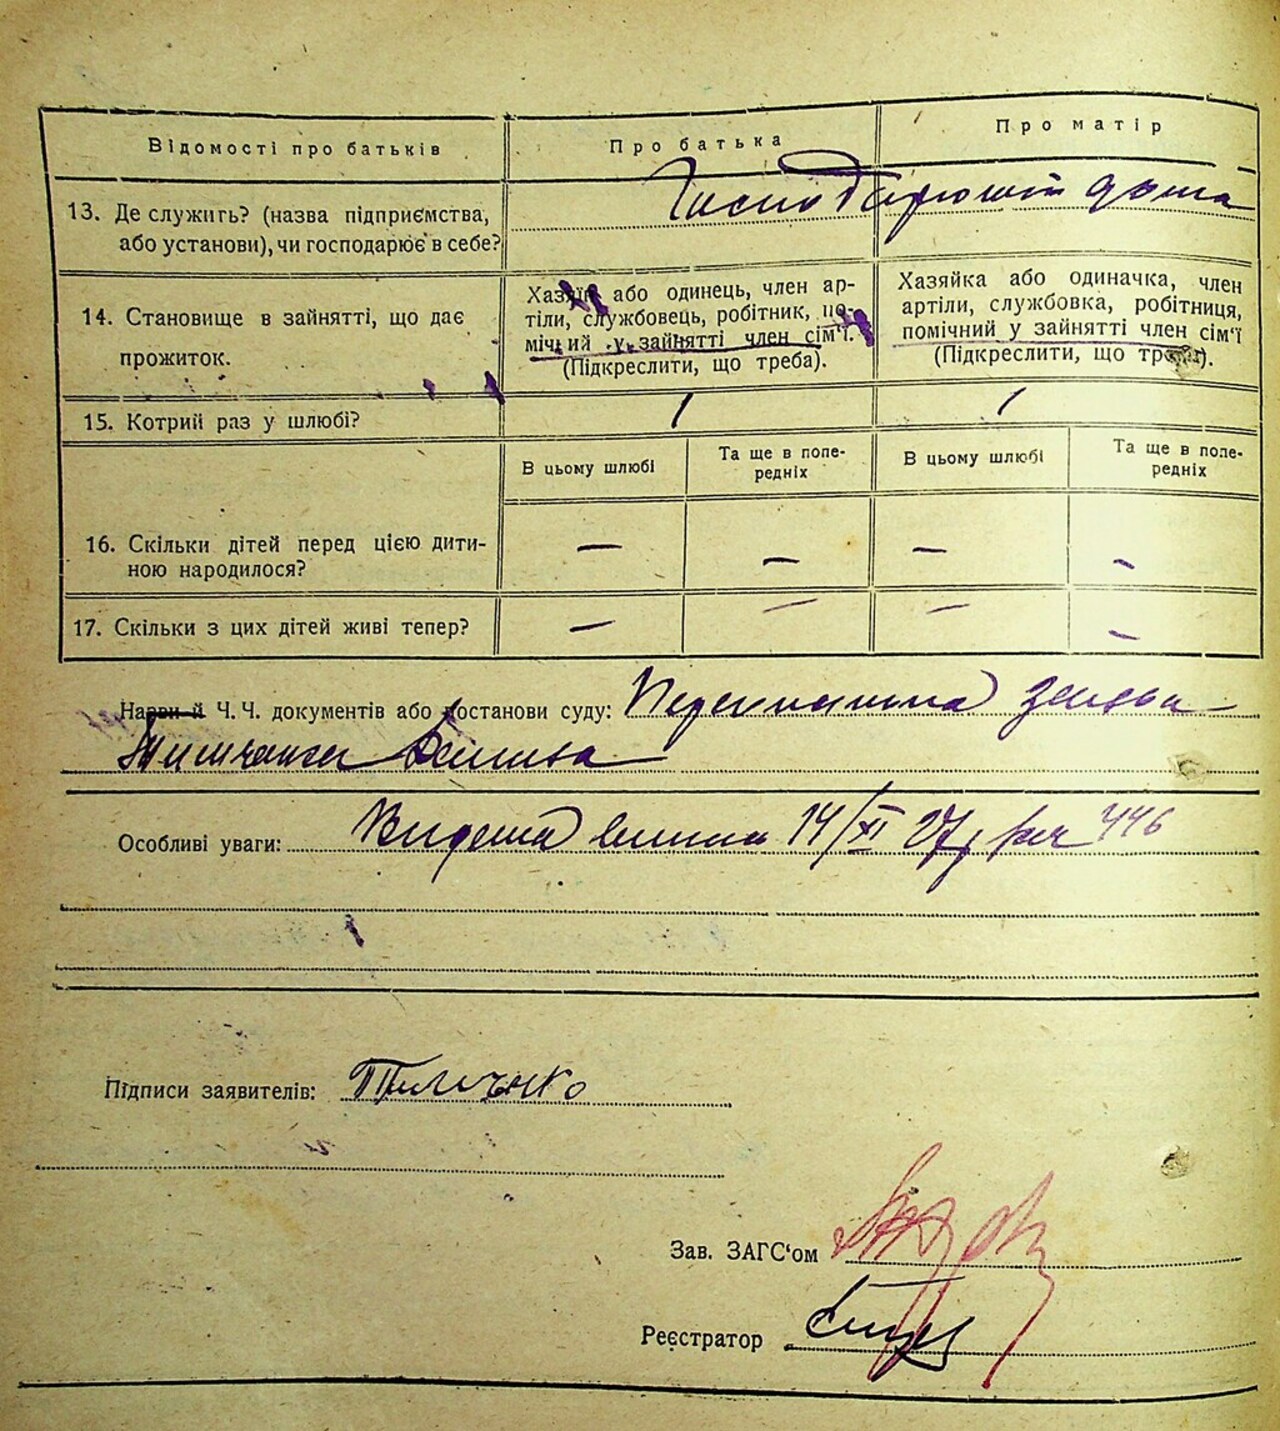 Відомості про батьків
Про батька
Про матір
13. Де служить? (назва підприємства,
або установи), чи господарює в себе?
Господарюють дома
14. Становище в зайнятті, що дає
прожиток.
Хазяїн або одинець, член ар-
тіли, службовець, робітник, по-
мічний у зайнятті член сім‘ї.
(Підкреслити, що треба).
Хазяйка або одиначка, член
артіли, службовка, робітниця,
помічний у зайнятті член сім‘ї
(Підкреслити, що треба).
15. Котрий раз у шлюбі?
1
1
В цьому шлюбі
Та ще в попе-
редніх
В цьому шлюбі
Та ще в попе-
редніх
16. Скільки дітей перед цією дити-
ною народилося?
— — — —
17. Скільки з цих дітей живі тепер?
— — — —
Назви й Ч. Ч. документів або постанови суду:
Особливі уваги: 14/XI 27 446
Підписи заявителів: Тимченко
Зав. ЗАГС‘ом
Реєстратор